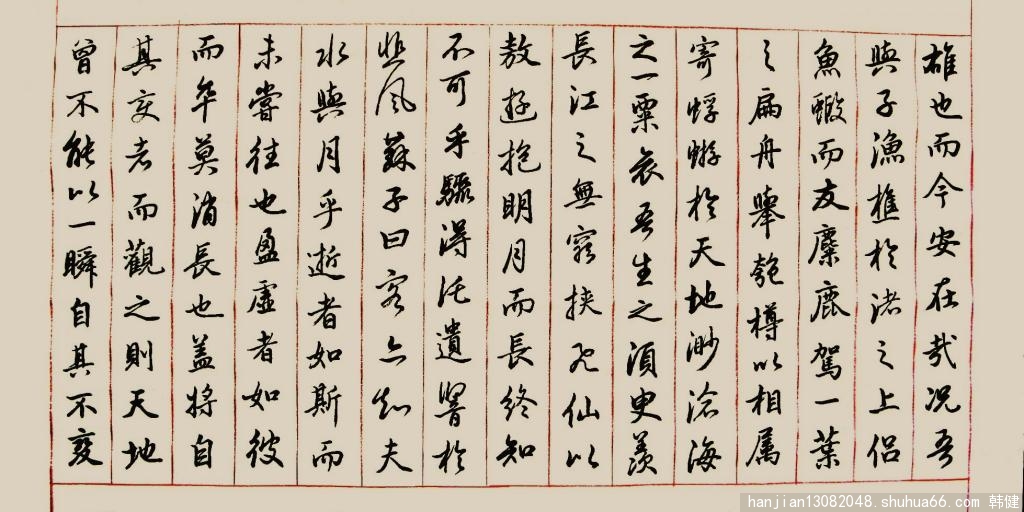 雄也而今安在哉况吾
與子漁樵於渚之上侣
魚蝦而友麋鹿駕一葉
之扁舟舉匏樽以相属
寄蜉蝣於天地渺滄海
之一粟哀吾生之須臾羨
長江之無窮挾飛仙以
敖遊抱明月而長終知
不可乎驟得托遺響於
悲風蘇子曰客亦知夫
水與月乎逝者如斯而
未嘗往也盈虚者如彼
而卒莫消長也盖將自
其变者而觀之則天地
曾不能以一瞬自其不变
hanjian13082048.shuhua66.com 韩健